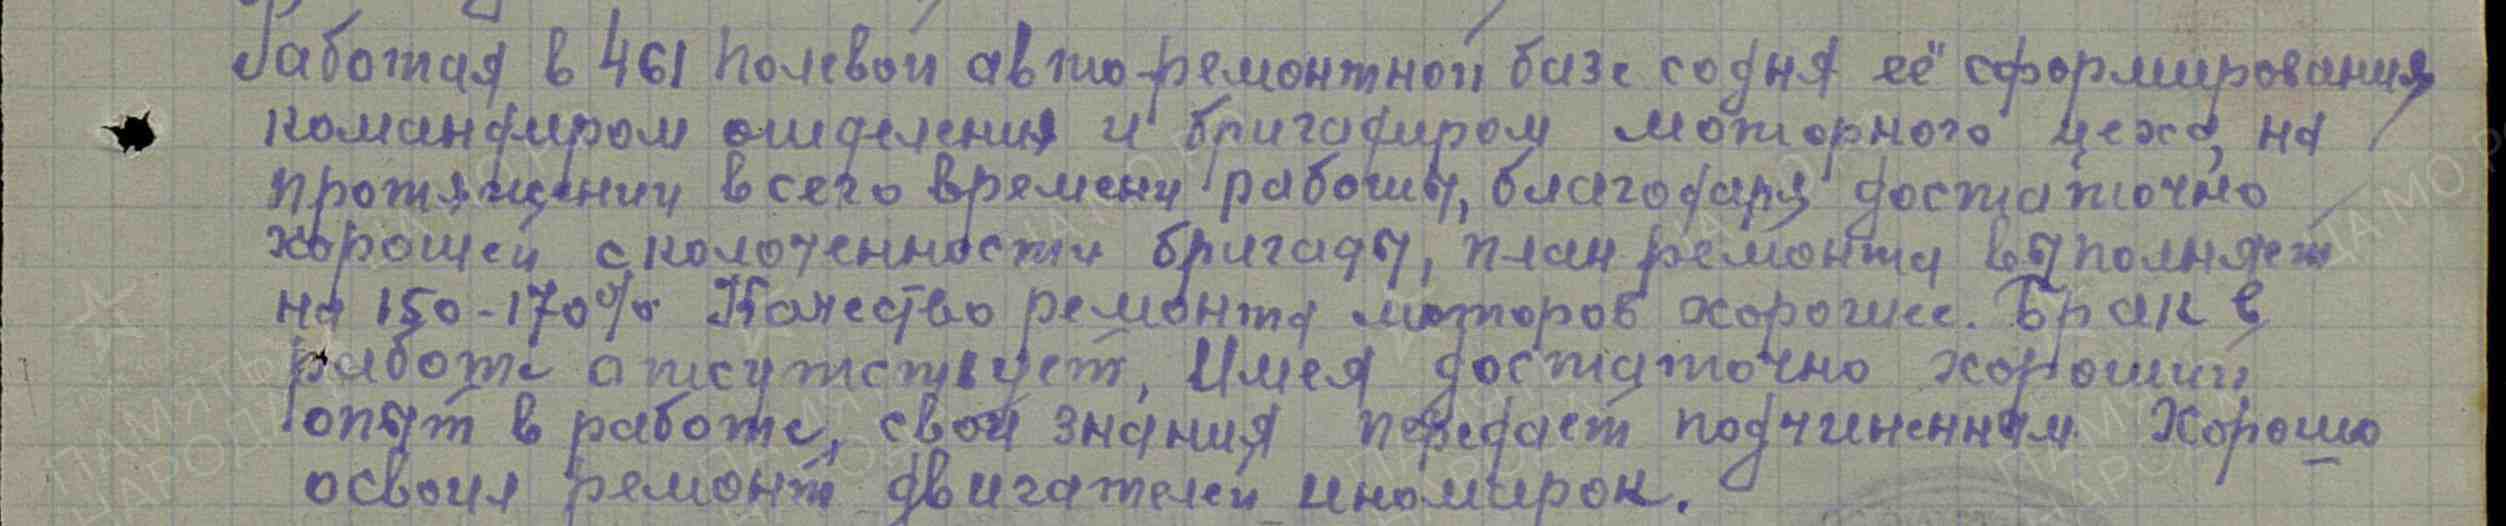 Работая в 461 полевой авто-ремонтной базе со дня её сформирования
командиром отделения и бригадиром моторного цеха, на
протяжении всего времени работы, благодаря достаточно
хорошей сколоченности бригады, план ремонта выполняет
на 150-170% Качество ремонта моторов хорошее. Брак в
работе отсутствует, Имея достаточно хороший
опыт в работе, свои знания передает подчиненным. Хорошо
освоил ремонт двигателей иномарок.